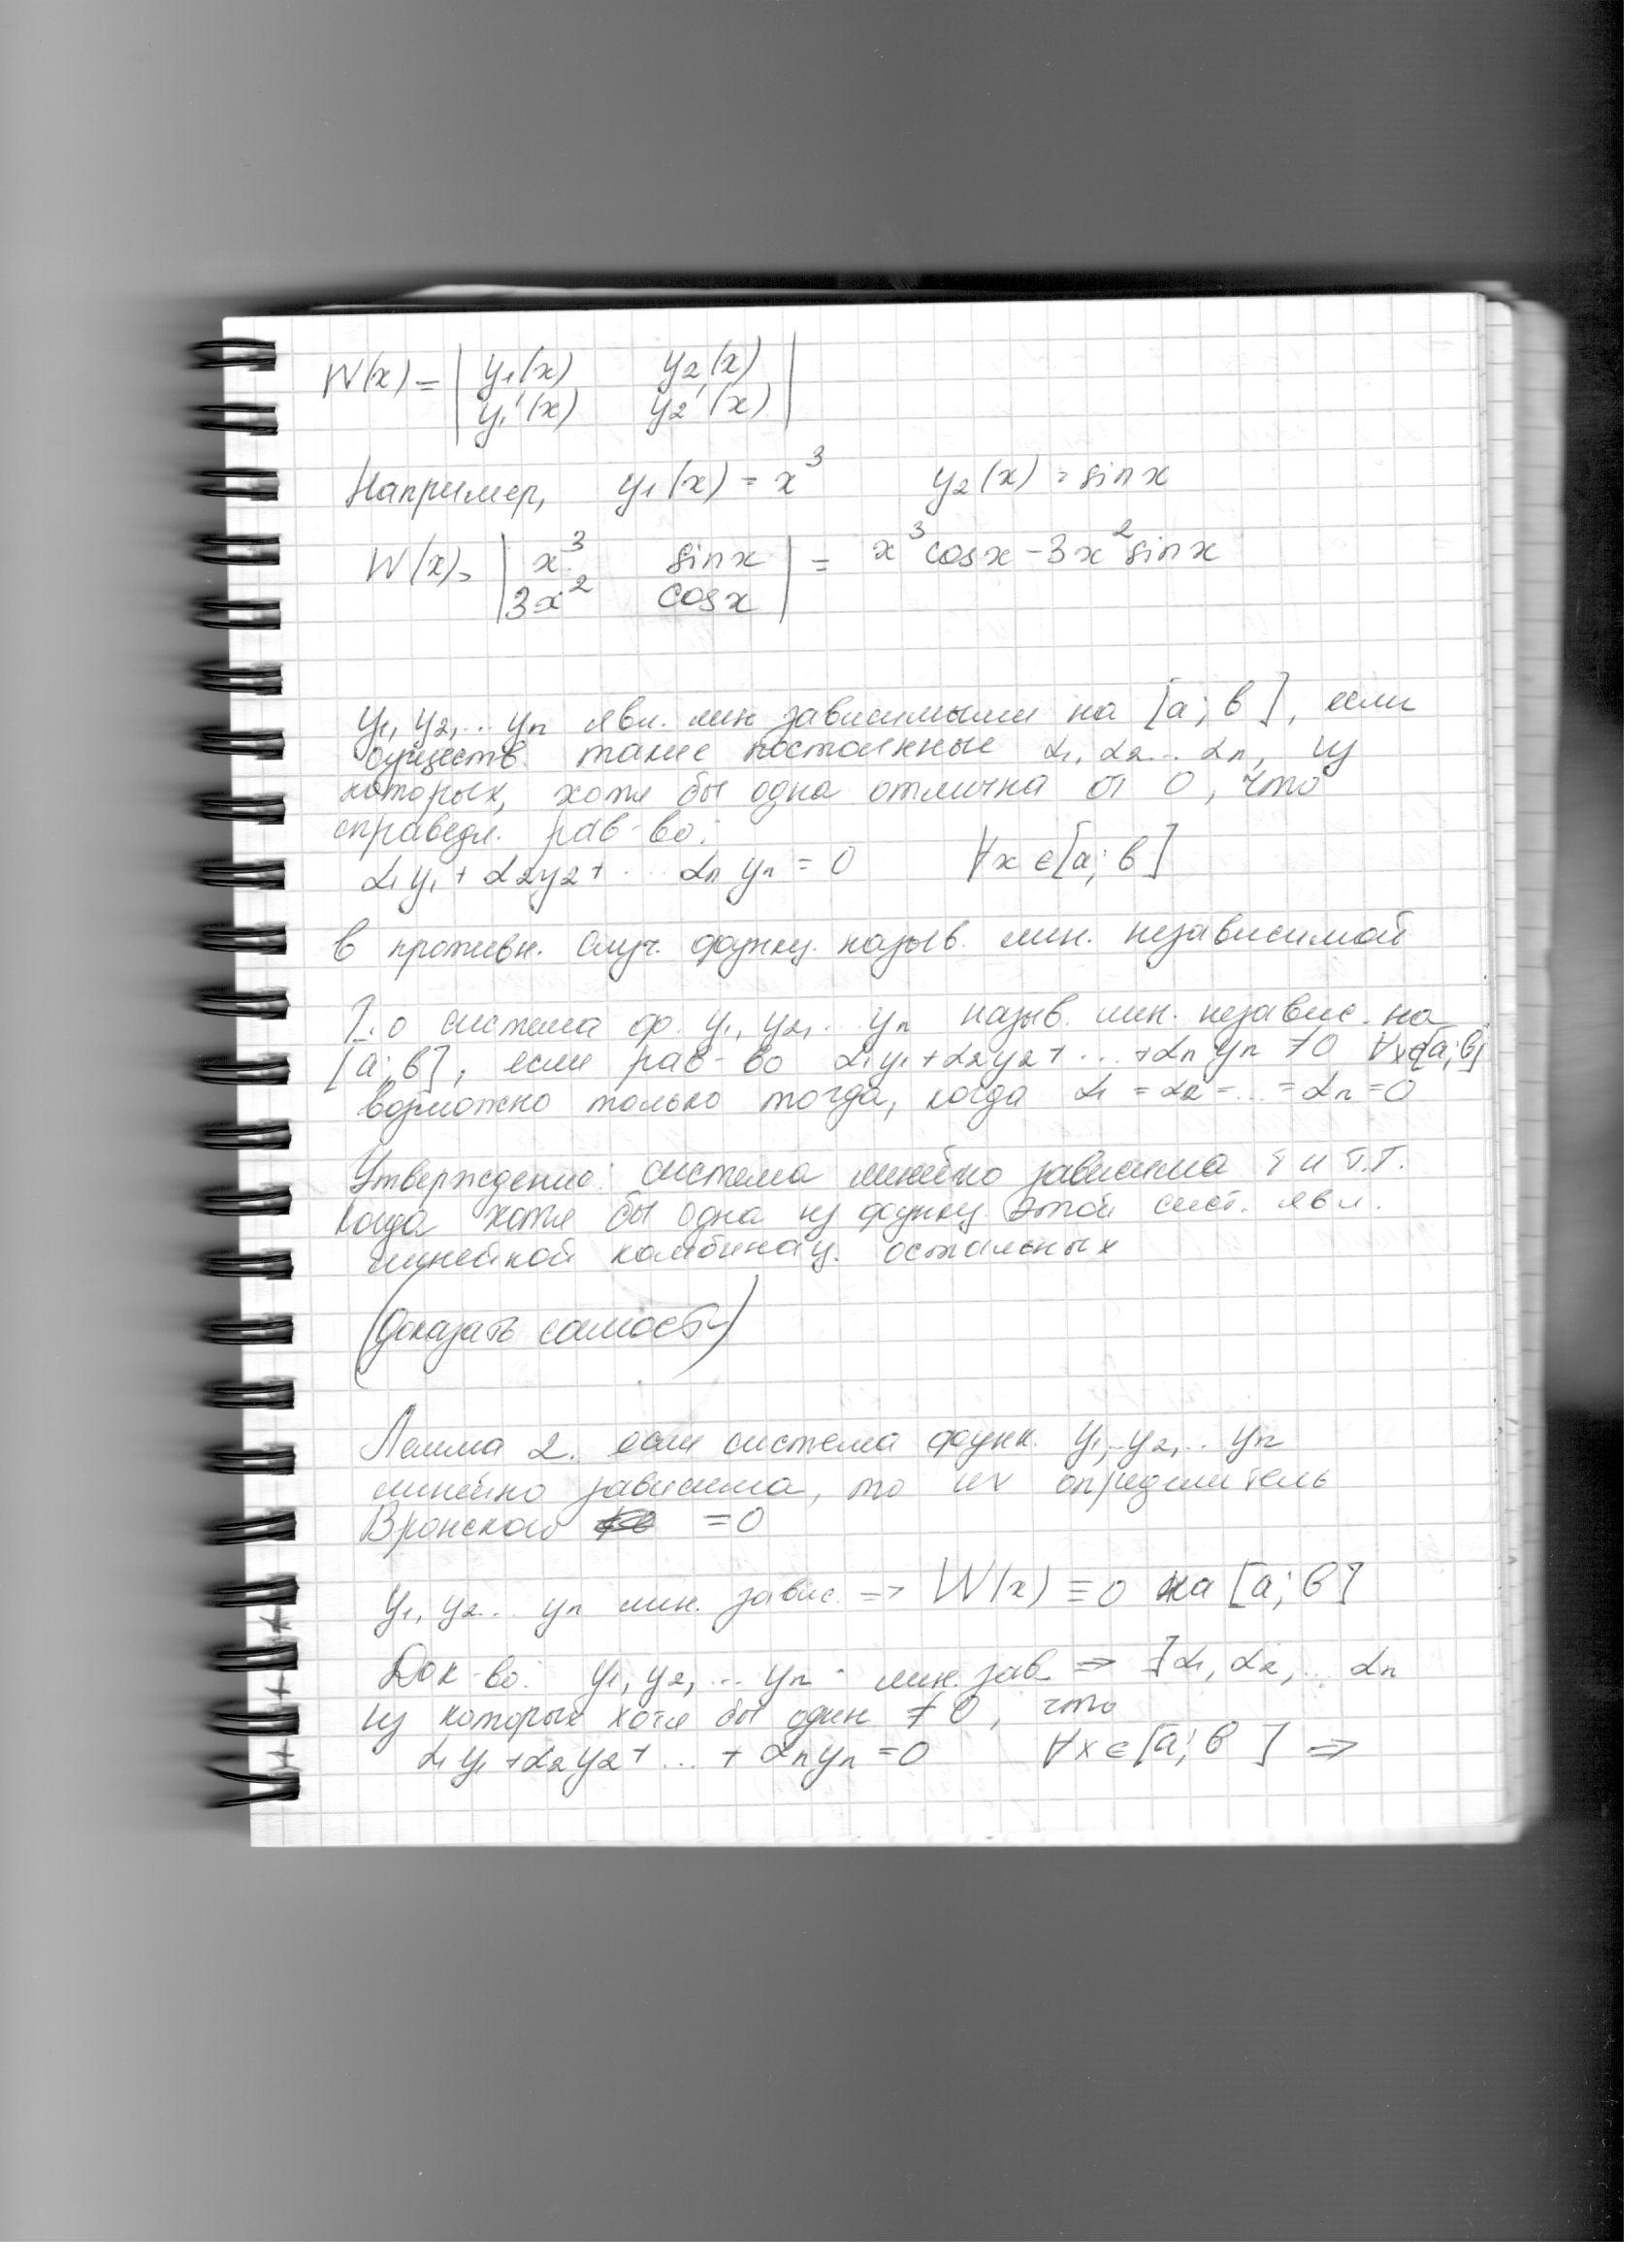 W(x) = | y₁(x) y₂(x) |
| y₁'(x) y₂'(x) |
Например, y₁(x) = x³ y₂(x) = sinx
W(x) = | x³ sinx | = x³cosx - 3x²sinx
| 3x² cosx |
y₁, y₂, ... yₙ явл. лин. зависимыми на [a; b], если
существ. такие постоянные α₁, α₂ ... αₙ, из
которых, хотя бы одна отлична от 0, что
справедл. рав-во:
α₁y₁ + α₂y₂ + ... αₙyₙ = 0 ∀x ∈ [a; b]
в противн. случ. функц. назыв. лин. независимой
Т.о система ф. y₁, y₂, ... yₙ назыв. лин. независ. на
[a; b], если рав-во α₁y₁ + α₂y₂ + ... + αₙyₙ ≠ 0 ∀x∈[a; b]
возможно только тогда, когда α₁ = α₂ = ... = αₙ = 0
Утверждение: система линейно зависима т и т.т.
когда хотя бы одна из функц этой сист. явл.
линейной комбинац. остальных
(Доказать самост)
Лемма 2. если система функ. y₁, y₂, ... yₙ
линейно зависима, то их определитель
Вронского = 0
y₁, y₂ ... yₙ лин. завис. => W(x) ≡ 0 на [a; b]
Док-во: y₁, y₂, ... yₙ - лин. зав => ∃ α₁, α₂, ... αₙ
из которых хотя бы один ≠ 0, что
α₁y₁ + α₂y₂ + ... + αₙyₙ = 0 ∀x ∈ [a; b] =>